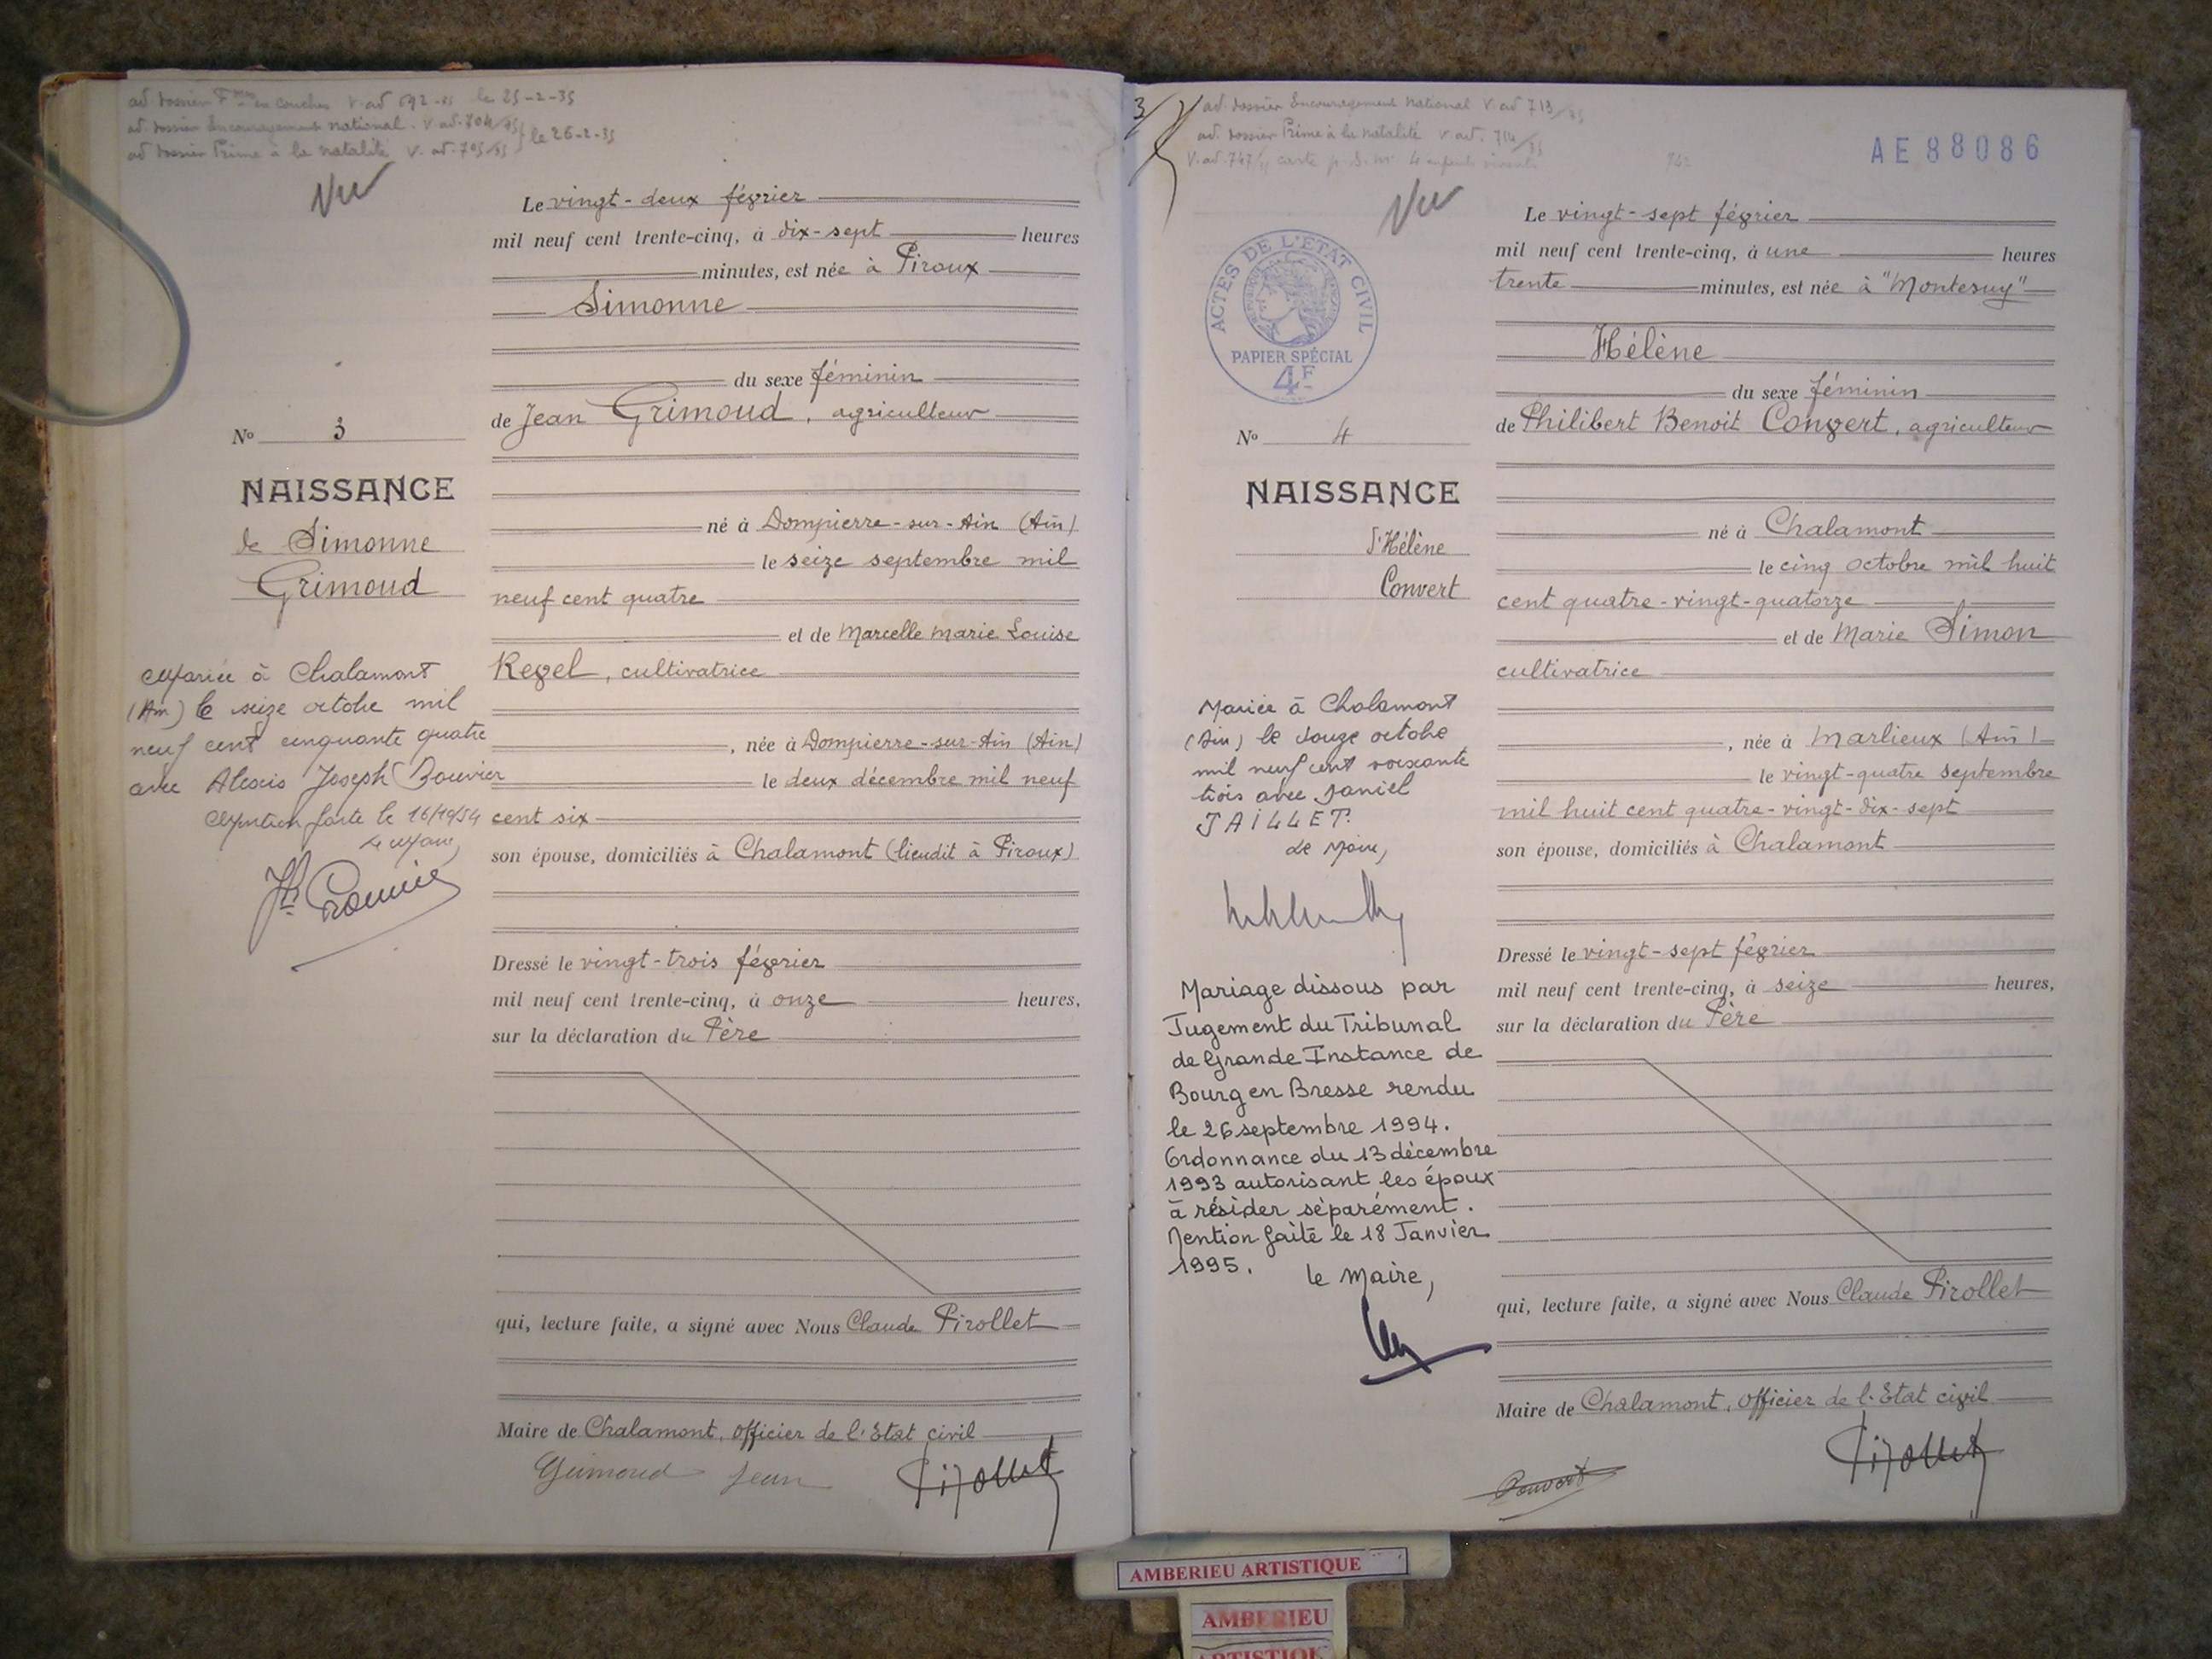 ad. dossier en couches V. ad 692-35 le 25-2-35
ad. dossier Encouragement national. V ad. 704/35
ad dossier Prime à la natalité V. ad. 705/35 le 26-2-35
Vu
Le vingt-deux février
mil neuf cent trente-cinq, à dix-sept heures
minutes, est née à Piroux
Simonne
du sexe féminin
de Jean Grimoud, agriculteur
No 3
NAISSANCE
de Simonne
Grimoud
né à Dompierre-sur-Ain (Ain)
le seize septembre mil
neuf cent quatre
et de Marcelle Marie Louise
Revel, cultivatrice
, née à Dompierre-sur-Ain (Ain)
le deux décembre mil neuf
cent six
son épouse, domiciliés à Chalamont (lieudit à Piroux)
Mariée à Chalamont
(Ain) le seize octobre mil
neuf cent cinquante quatre
avec Alexis Joseph Bouvier
Mention faite le 16/10/54
Le Maire,
Dressé le vingt-trois février
mil neuf cent trente-cinq, à onze heures,
sur la déclaration du Père
qui, lecture faite, a signé avec Nous Claude Pirollet
Maire de Chalamont, Officier de l'Etat civil
Grimoud Jean Pirollet
3/
ad. dossier Encouragement national V. ad 713/35
ad. dossier Prime à la natalité V. ad. 714/35
V. ad. 747/ carte 4 enfants vivants
Vu
AE88086
ACTES DE L'ETAT CIVIL
PAPIER SPÉCIAL
4F
Le vingt-sept février
mil neuf cent trente-cinq, à une heures
trente minutes, est née à "Montesuy"
Hélène
du sexe féminin
de Philibert Benoit Convert, agriculteur
No 4
NAISSANCE
d'Hélène
Convert
né à Chalamont
le cinq octobre mil huit
cent quatre-vingt-quatorze
et de Marie Simon
cultivatrice
, née à Marlieux (Ain)
le vingt-quatre septembre
mil huit cent quatre-vingt-dix-sept
son épouse, domiciliés à Chalamont
Mariée à Chalamont
(Ain) le douze octobre
mil neuf cent soixante
trois avec Daniel
JAILLET.
Le Maire,
Mariage dissous par
Jugement du Tribunal
de Grande Instance de
Bourg en Bresse rendu
le 26 septembre 1994.
Ordonnance du 13 décembre
1993 autorisant les époux
à résider séparément.
Mention faite le 18 Janvier
1995.
le Maire,
Dressé le vingt-sept février
mil neuf cent trente-cinq, à seize heures,
sur la déclaration du Père
qui, lecture faite, a signé avec Nous Claude Pirollet
Maire de Chalamont, Officier de l'Etat civil
Convert Pirollet
AMBERIEU ARTISTIQUE
AMBERIEU